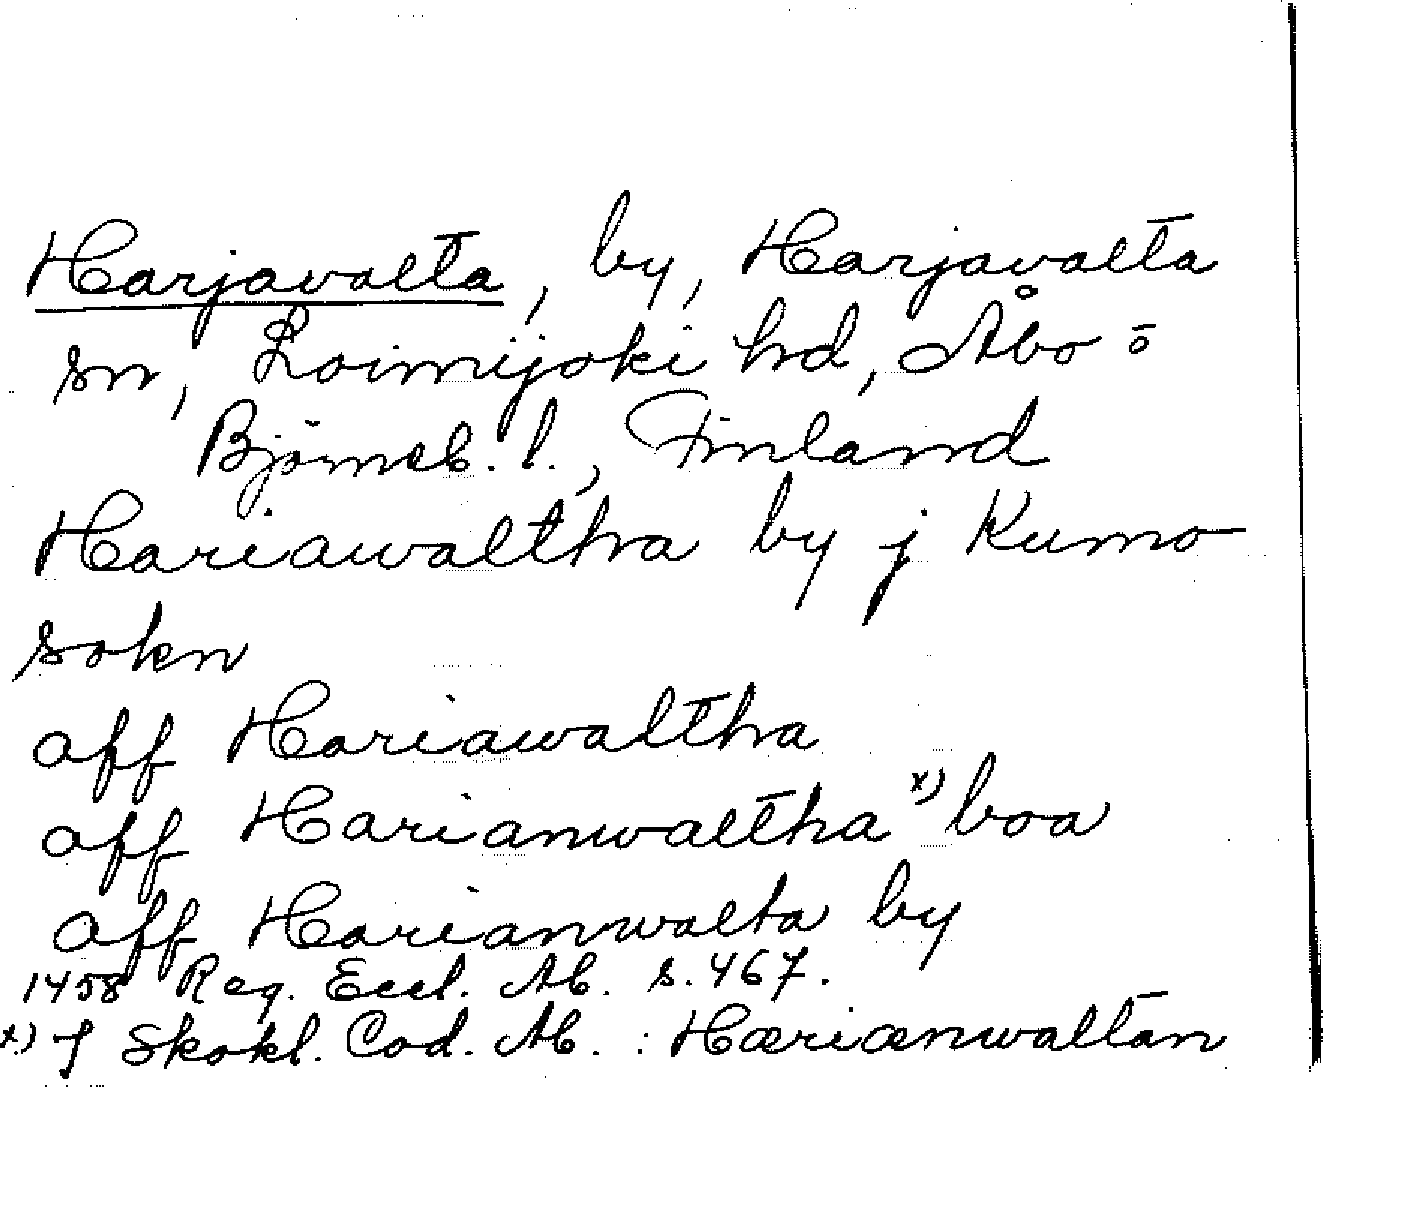 Harjavalta, by, Harjavalta
sn, Loimijoki hd, Åbo o
Björneb. l., Finland
Hariawaltha by j Kumo
sokn
aff Hariawaltha
aff Harianwaltha x) boa
aff Harianwalta by
1458 Reg. Eccl. Ab. s. 467.
x) J Skokl. Cod. Ab. : Hæriænwaltan